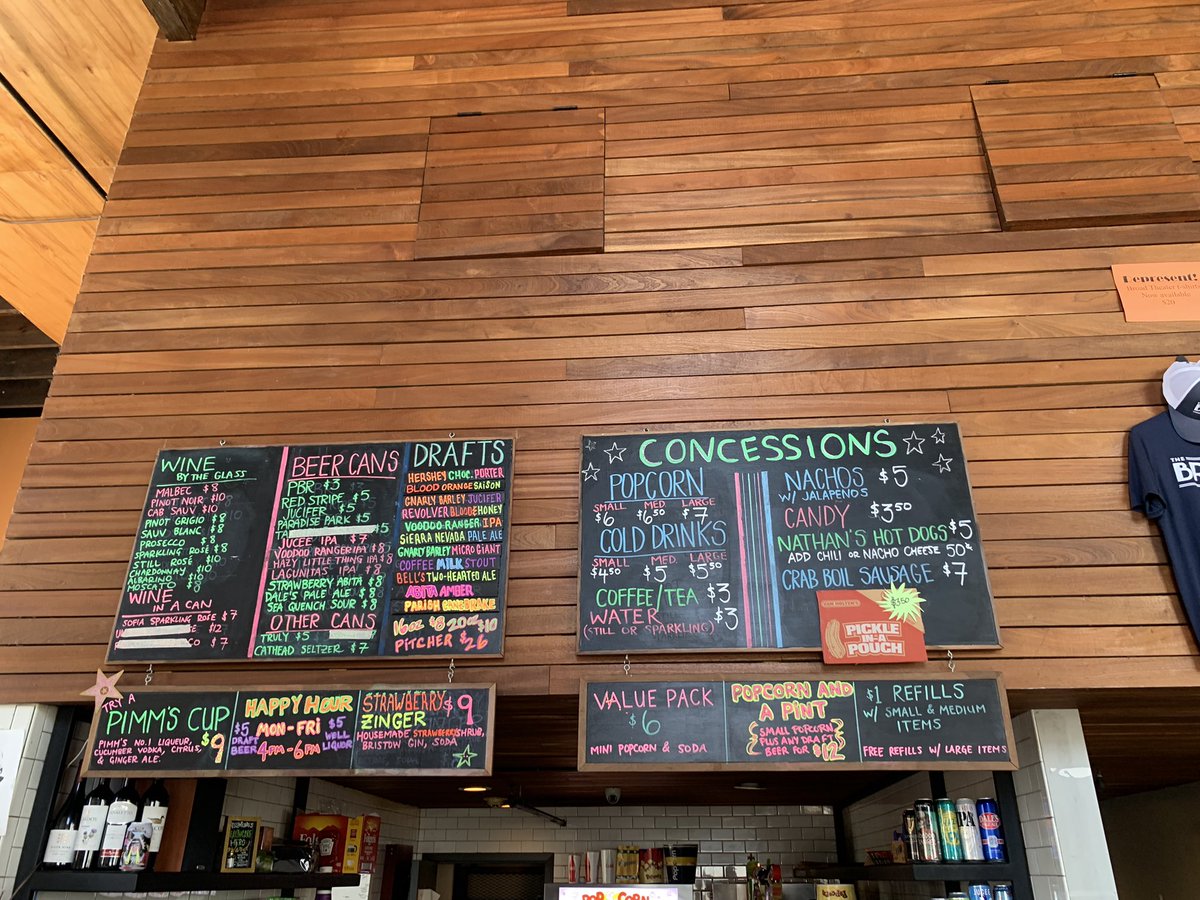 WINE
BY THE GLASS
MALBEC $8
PINOT NOIR $10
CAB SAUV $10
PINOT GRIGIO $8
SAUV BLANC $8
PROSECCO $8
SPARKLING ROSÉ $8
STILL ROSÉ $8
CHARDONNAY $10
ALBARINO $10
MOSCATO $8
WINE
IN A CAN
SOFIA SPARKLING ROSE $7
$7
CO $7
BEER CANS
PBR $3
RED STRIPE $5
JUCIFER $5
PARADISE PARK $5
TA
JUCEE IPA $7
VOODOO RANGER IPA $8
HAZY LITTLE THING IPA $8
LAGUNITAS IPA $8
STRAWBERRY ABITA $8
DALE'S PALE ALE $8
SEA QUENCH SOUR $8
OTHER CANS
TRULY $5
CATHEAD SELTZER $7
DRAFTS
HERSHEY CHOC. PORTER
BLOOD ORANGE SAISON
GNARLY BARLEY JUCIFER
REVOLVER BLOOD HONEY
VOODOO RANGER IPA
SIERRA NEVADA PALE ALE
GNARLY BARLEY MICRO GIANT
COFFEE MILK STOUT
BELL'S TWO-HEARTED ALE
ABITA AMBER
PARISH CANEBRAKE
16oz $8 20oz $10
PITCHER $26
CONCESSIONS
POPCORN
SMALL MED LARGE
$6 $6.50 $7
COLD DRINKS
SMALL MED. LARGE
$4.50 $5 $5.50
COFFEE/TEA $3
WATER $3
(STILL OR SPARKLING)
NACHOS $5
W/ JALAPEÑOS
CANDY $3.50
NATHAN'S HOT DOGS $5
ADD CHILI OR NACHO CHEESE 50¢
CRAB BOIL SAUSAGE $7
$3.50
VAN HOLTEN'S
PICKLE
IN-A
POUCH
TRY A
PIMM'S CUP
$9
PIMM'S NO.1 LIQUEUR,
CUCUMBER VODKA, CITRUS,
& GINGER ALE.
HAPPY HOUR
MON-FRI
4PM-6PM
$5
DRAFT
BEER
$5
WELL
LIQUOR
STRAWBERRY
ZINGER $9
HOUSEMADE STRAWBERRY SHRUB,
BRISTOW GIN, SODA
VALUE PACK
$6
MINI POPCORN & SODA
POPCORN AND
A PINT
SMALL POPCORN
PLUS ANY DRAFT
BEER FOR $12
$1 REFILLS
W/ SMALL & MEDIUM
ITEMS
FREE REFILLS W/ LARGE ITEMS
Represent!
Broad Theater t-shirts
Now available
$20
THE
BR
POPCORN
DALE'S